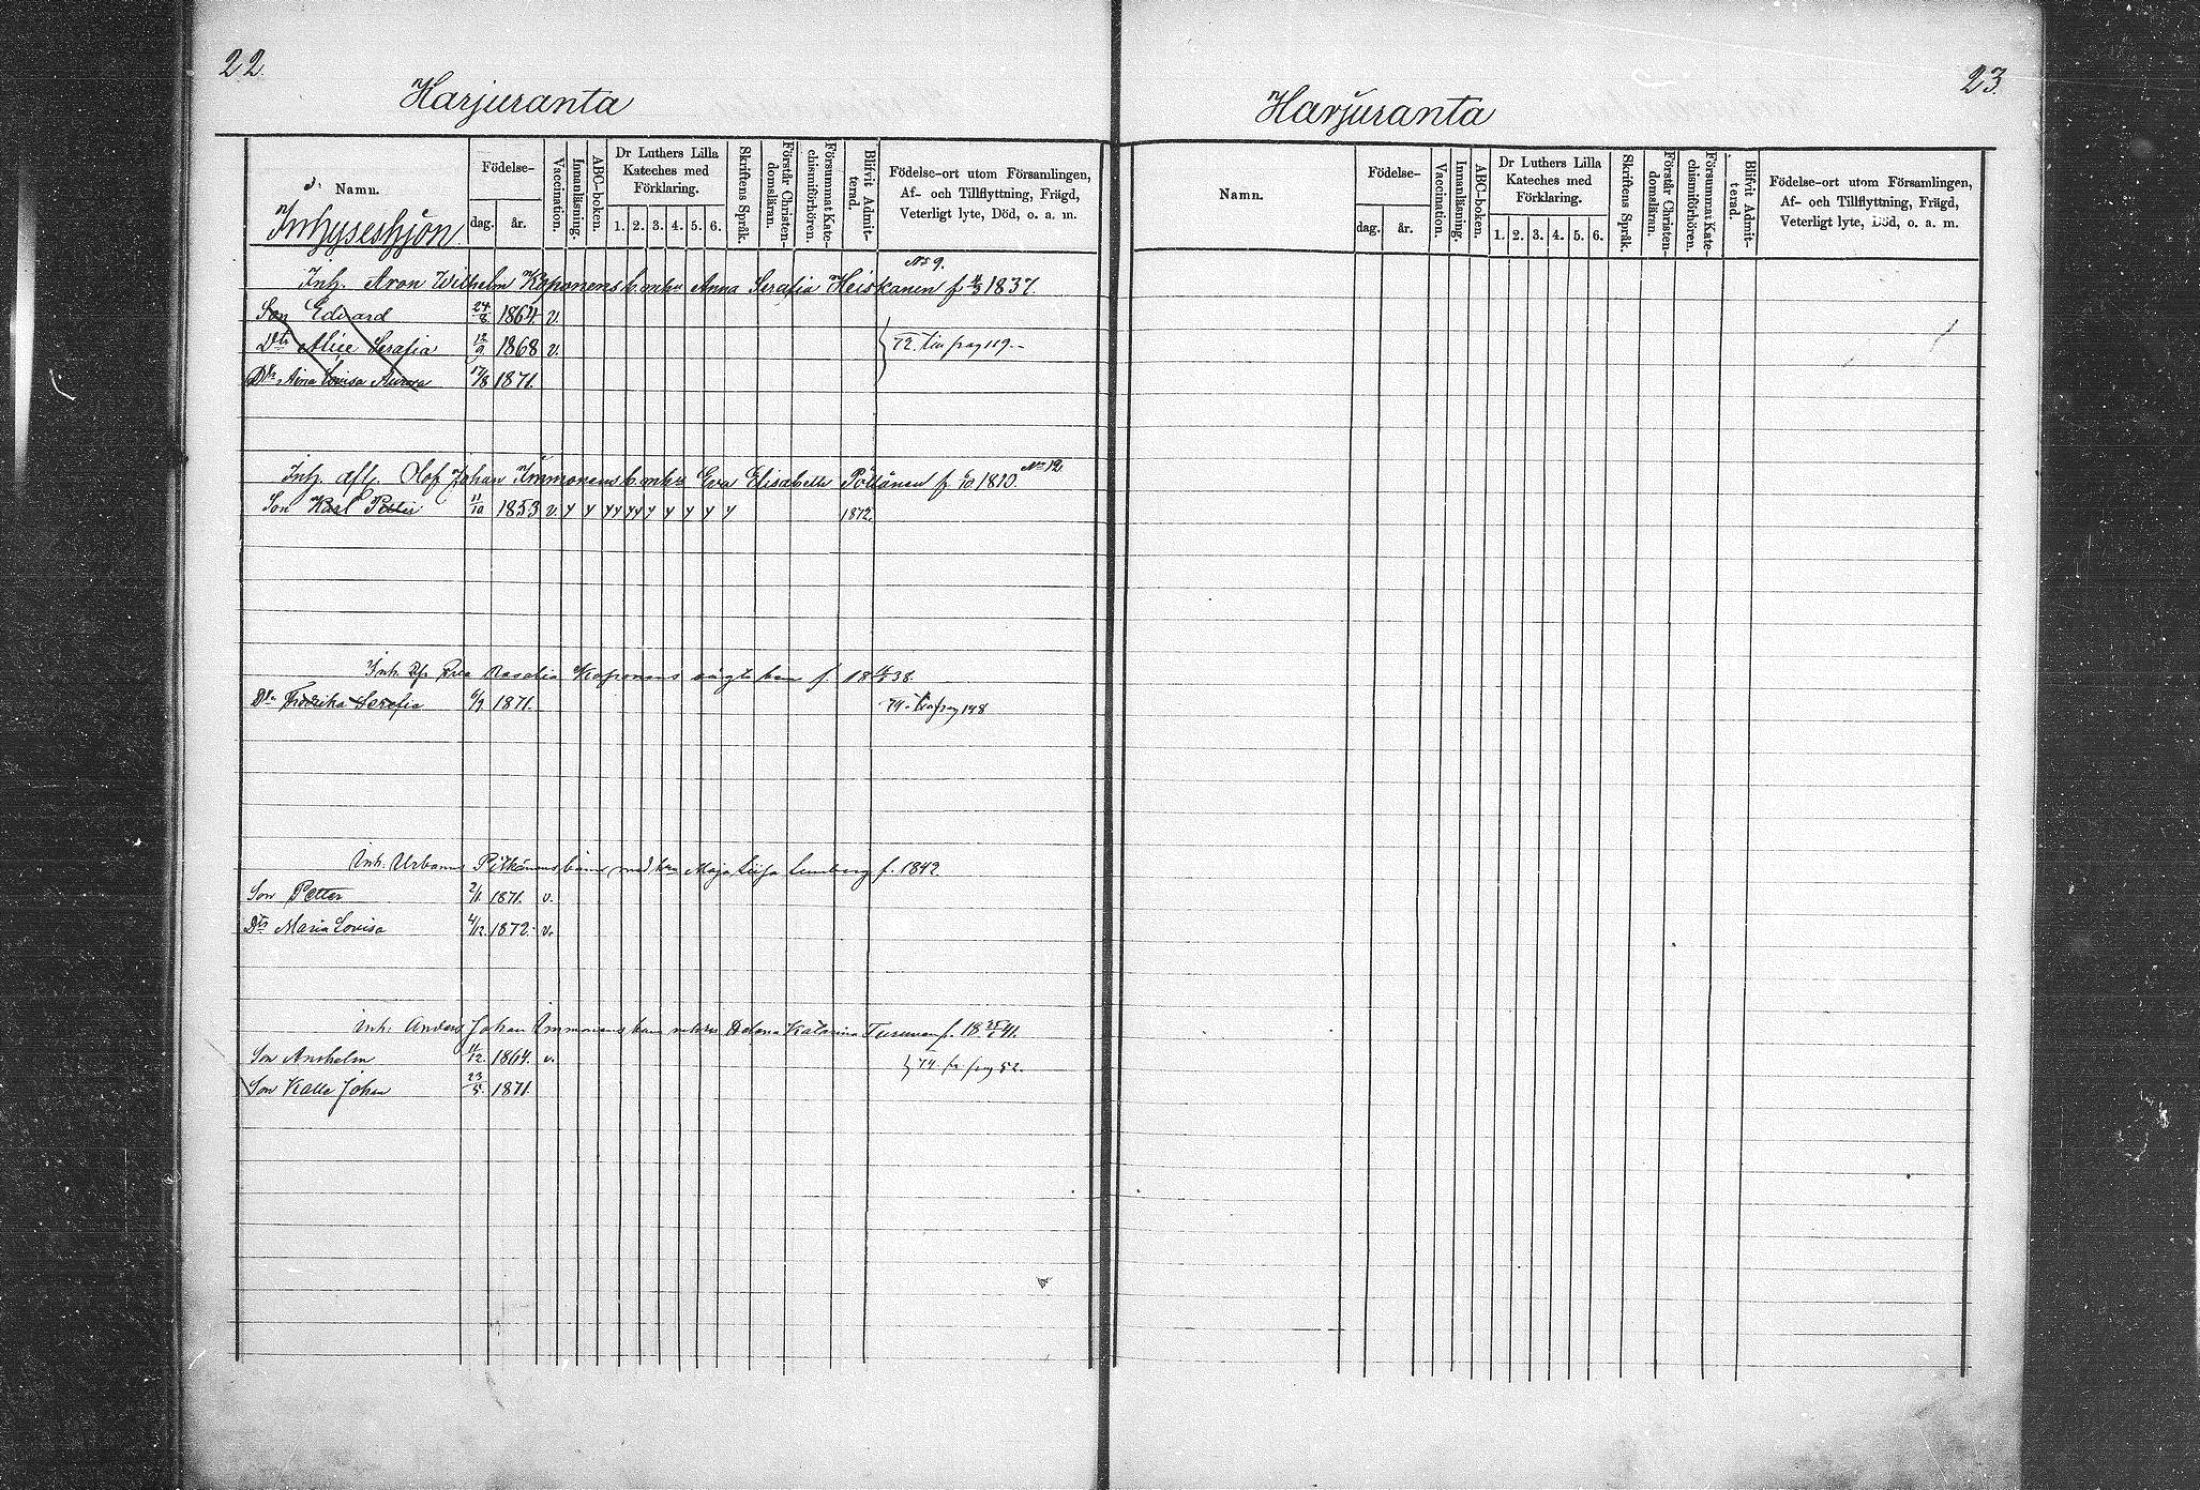 22.
Harjuranta
Namn.
Inhyseshjon.
Födelse-
dag.
år.
Vaccination.
Innanläsning.
ABC-boken.
Dr Luthers Lilla
Kateches med
Förklaring.
1. 2. 3. 4. 5. 6.
Skriftens Språk.
Förstår Christen-
domsläran.
Försummat Kate-
chismiförhören.
Blifvit Admit-
terad.
Födelse-ort utom Församlingen,
Af- och Tillflyttning, Frägd,
Veterligt lyte, Död, o. a. m.
No 9.
Inh. Aron Wilhelm Koponens b. m hu Anna Serafia Heiskanen f. 1837.
Son Edvard 24/8 1864. v.
Dtr Alice Serafia 12/9 1868 v.
72. 119.
Dtr Aina Lovisa Aurora 17/8 1871.
No 12.
Inh. afl. Olof Johan Immonens b. m hu Eva Elisabeth Pöllänen f. 1810.
Son Karl Petter 11/10 1853 v. y y yy yy y y y y y 1872.
Inh. Rosalia Koponens f. 1838.
Dtr Fredrika Serafia 6/9 1871. 148
Inh. Urbanus Pitkänens barn med hu Maja Lisa f. 1842.
Son Petter 2/1 1871. v.
Dtr Maria Lovisa 4/12 1872. v.
Inh. Anders Johan Immonens barn Helena Katarina Turunen f. 18 41.
Son Anshelm 11/12. 1864. v.
74. 52.
Son Kalle Johan 23/5. 1871.
23.
Harjuranta
Namn.
Födelse-
dag.
år.
Vaccination.
Innanläsning.
ABC-boken.
Dr Luthers Lilla
Kateches med
Förklaring.
1. 2. 3. 4. 5. 6.
Skriftens Språk.
Förstår Christen-
domsläran.
Försummat Kate-
chismiförhören.
Blifvit Admit-
terad.
Födelse-ort utom Församlingen,
Af- och Tillflyttning, Frägd,
Veterligt lyte, Död, o. a. m.